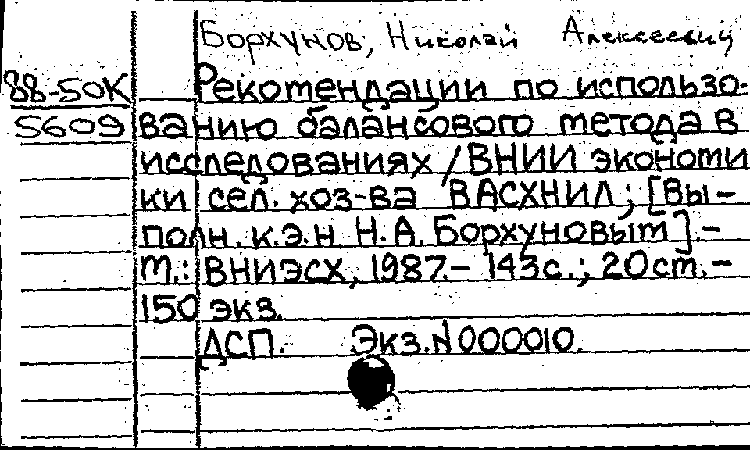 Борхунов, Николай Алексеевич
88-50К Рекомендации по использо-
5609 ванию балансового метода в
исследованиях / ВНИИ экономи
ки сел. хоз-ва ВАСХНИЛ; [Вы-
полн. к.э.н Н.А. Борхуновым].-
М.: ВНИЭСХ, 1987.- 143с.; 20см.-
150 экз.
ДСП. Экз.N000010.